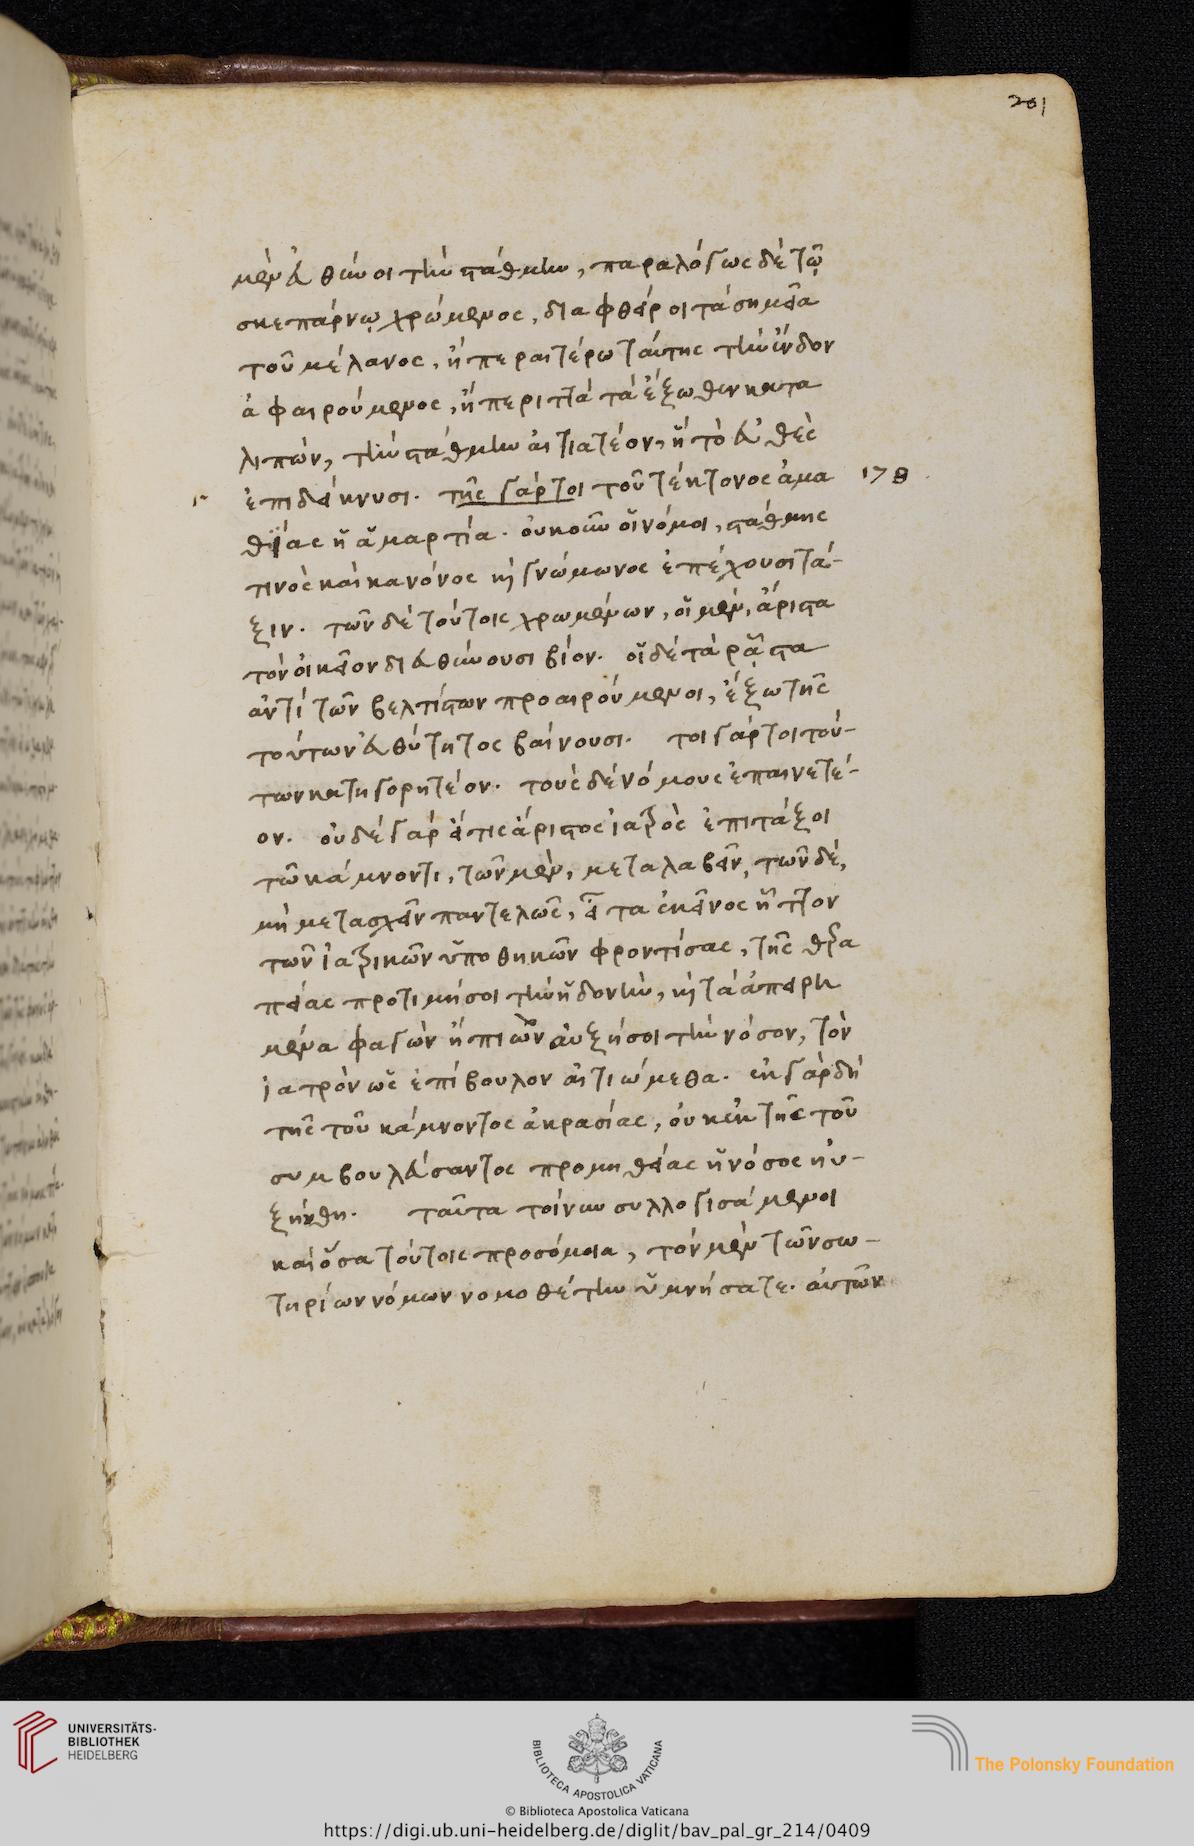 201
μὲν εὐθύνοι τὴν στάθμην, παραλόγως δὲ τῷ
σκεπάρνῳ χρώμενος, διαφθείροι τὰ σημεῖα
τοῦ μέλανος, ἢ περαιτέρω ταύτης τὴν ἔνδον
ἀφαιρούμενος, ἢ περιττὰ τὰ ἔξωθεν κατα
λιπών, τὴν στάθμην αἰτιατέον, ἢ τὸ εὐθὲς
ἐπιδείκνυσι. τῆς γάρ τοι τοῦ τέκτονος ἀμα 178
θίας ἡ ἁμαρτία. οὐκοῦν οἱ νόμοι, στάθμης
τινὸς καὶ κανόνος καὶ γνώμωνος ἐπέχουσι τά-
ξιν. τῶν δὲ τούτοις χρωμένων, οἱ μὲν, ἄριστα
τὸν οἰκεῖον διευθύνουσι βίον. οἱ δὲ τὰ ρᾷστα
ἀντὶ τῶν βελτίστων προαιρούμενοι, ἔξω τῆς
τούτων εὐθύτητος βαίνουσι. τοιγάρτοι τού-
των κατηγορητέον. τοὺς δὲ νόμους ἐπαινετέ-
ον. οὐδὲ γὰρ εἴ τις ἄριστος ἰατρὸς ἐπιτάξοι
τῷ κάμνοντι, τῶν μὲν, μεταλαβεῖν, τῶν δὲ,
μὴ μετασχεῖν παντελῶς, εἶτα ἐκεῖνος ἧττον
τῶν ἰατρικῶν ὑποθηκῶν φροντίσας, τῆς θερα
πείας προτιμήσοι τὴν ἡδονὴν, καὶ τὰ ἀπειρη
μένα φαγὼν ἢ πιὼν αὐξήσοι τὴν νόσον, τὸν
ἰατρὸν ὡς ἐπίβουλον αἰτιώμεθα. ἐκ γὰρ δὴ
τῆς τοῦ κάμνοντος ἀκρασίας, οὐκ ἐκ τῆς τοῦ
συμβουλεύσαντος προμηθείας ἡ νόσος ηὐ-
ξήθη. ταῦτα τοίνυν συλλογισάμενοι
καὶ ὅσα τούτοις προσόμοια, τὸν μὲν τῶν σω-
τηρίων νόμων νομοθέτην ὑμνήσατε. αὐτῶν
UNIVERSITÄTS-
BIBLIOTHEK
HEIDELBERG
BIBLIOTECA APOSTOLICA VATICANA
© Biblioteca Apostolica Vaticana
The Polonsky Foundation
https://digi.ub.uni-heidelberg.de/diglit/bav_pal_gr_214/0409